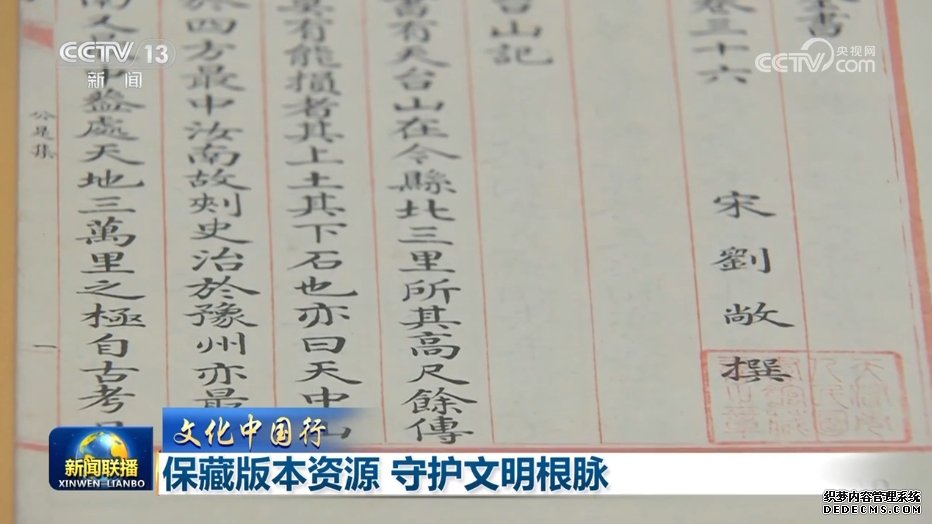 CCTV 13
新闻
央视网
CCTV.com
書
卷三十六 宋劉敞撰
山記
書有天台山在今縣北三里所其高尺餘傳
有能損者其上土其下石也亦曰天中山
於四方最中汝南故刺史治於豫州亦最
中蓋處天地三萬里之極自古考
公是集
一
文化中国行
新闻联播
XINWEN-LIANBO
保藏版本资源 守护文明根脉
织梦内容管理系统
DEDECMS.COM